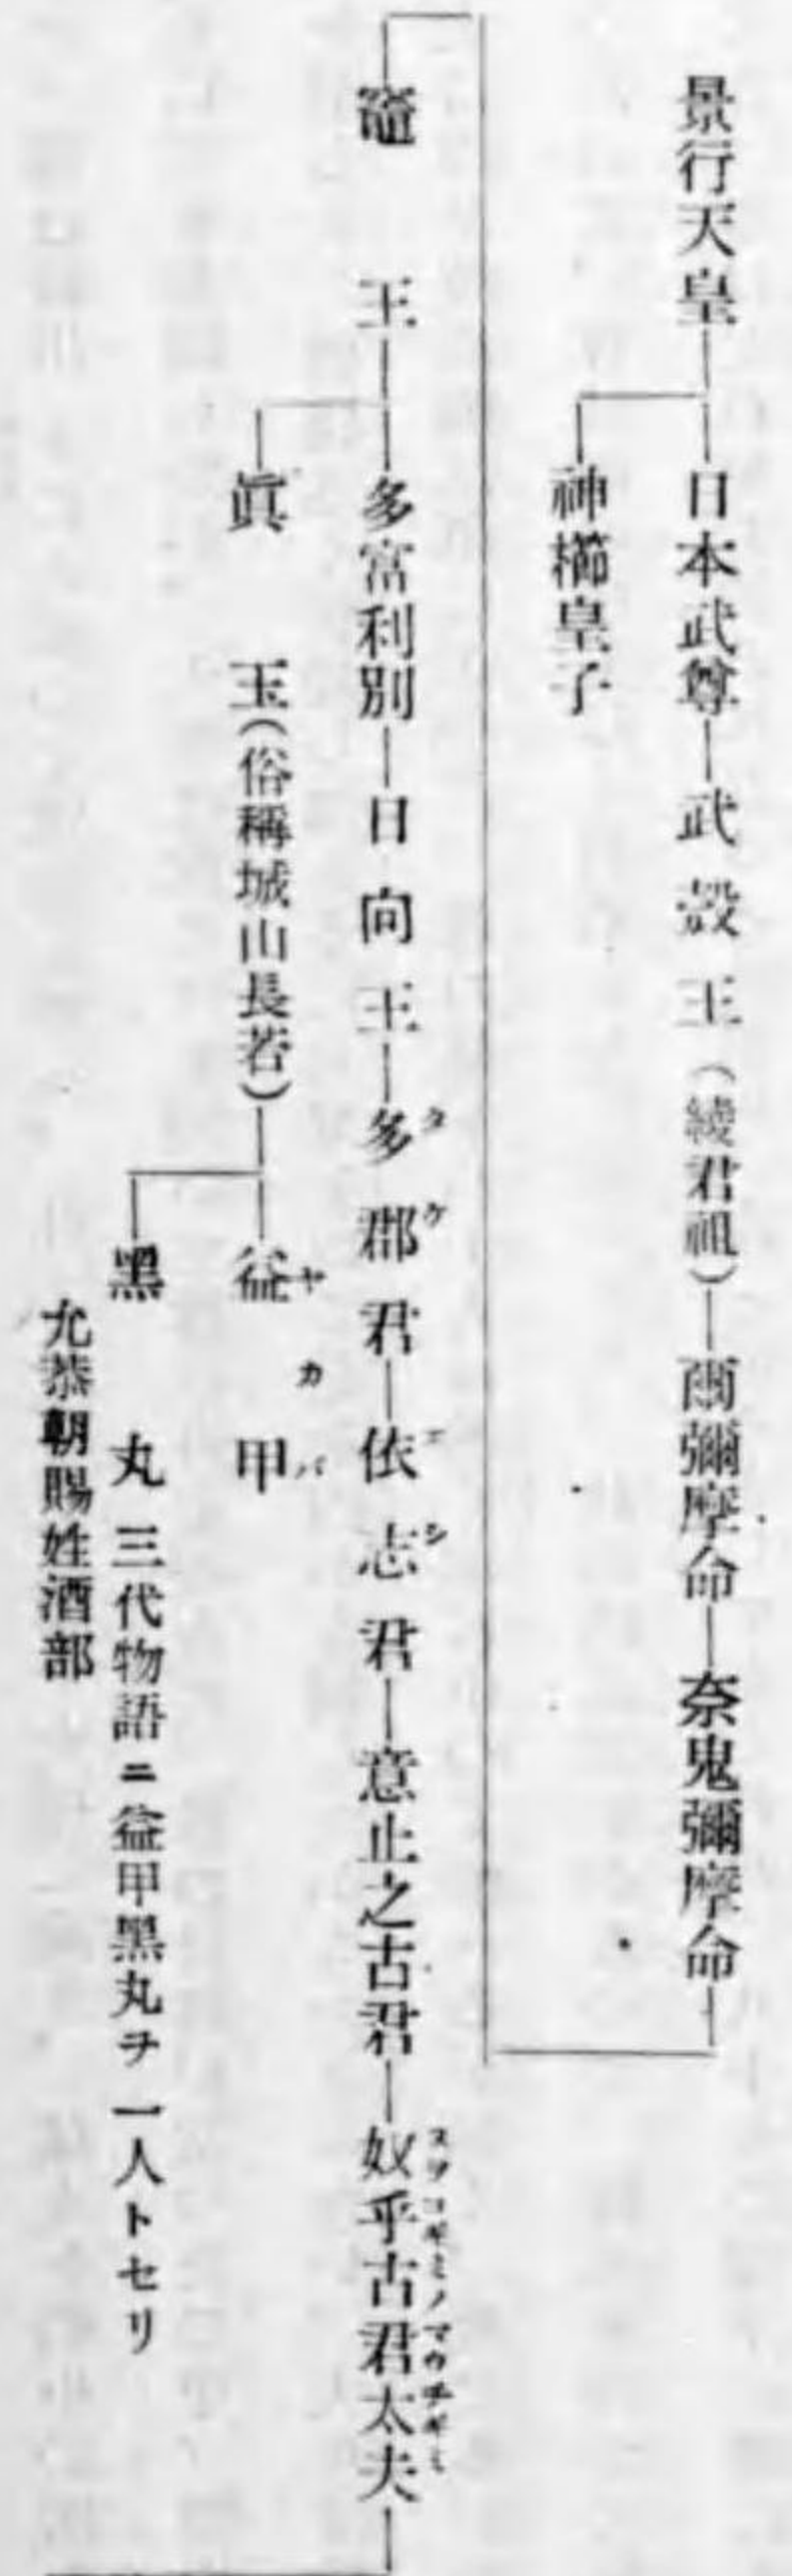 景行天皇
日本武尊
武殼王(綾君祖)
爾彌摩命
奈鬼彌摩命
神櫛皇子
竈王
多富利別
日向王
多郡君
タケ
依志君
エシ
意止之古君
奴乎古君太夫
ヌヲコギミノマウチギミ
眞玉(俗稱城山長若)
益甲
ヤカバ
黑丸
三代物語ニ益甲黑丸ヲ一人トセリ
允恭朝賜姓酒部